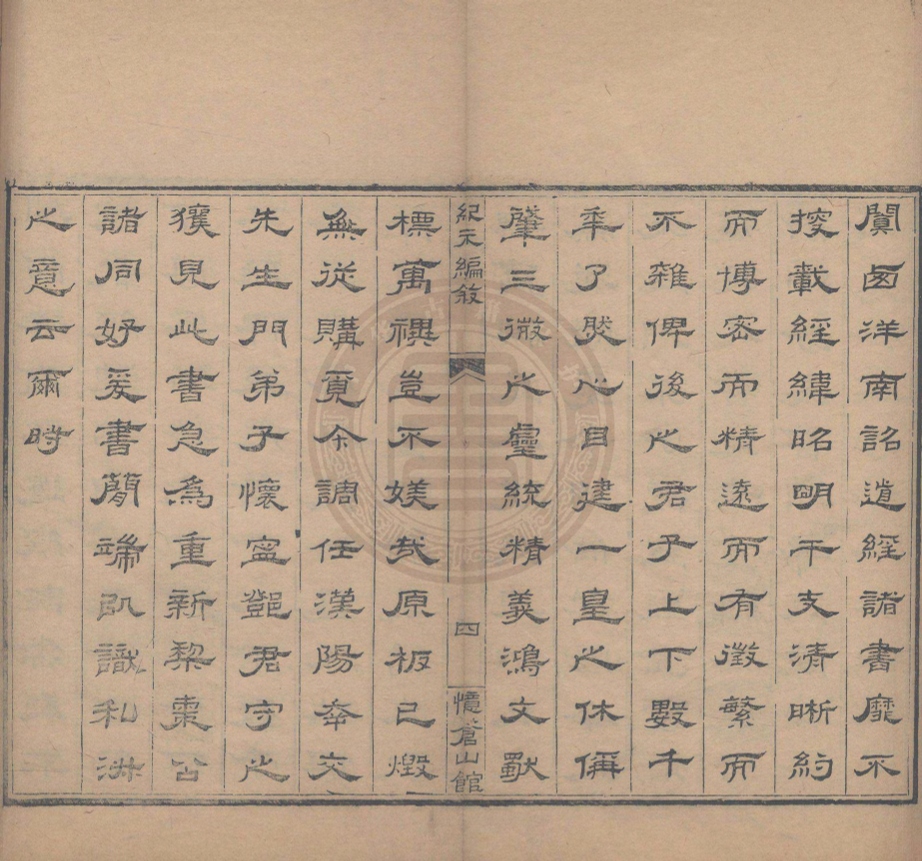 闐卥洋南詔道經諸書靡不
搜載經緯昭明干支清晰約
而博密而精遠而有徵繁而
不雜俾後之君子上下數千
年了然心目建一皇之休偁
肇三微之靈統精義鴻文
紀元編敘
四
憶蒼山館
標寓禩豈不媺哉原板已燬
無從購覓余調任漢陽奉交
先生門弟子懷甯鄧君守之
獲見此書急為重新棃棗公
諸同好爰書簡端以識私淑
之意云爾時